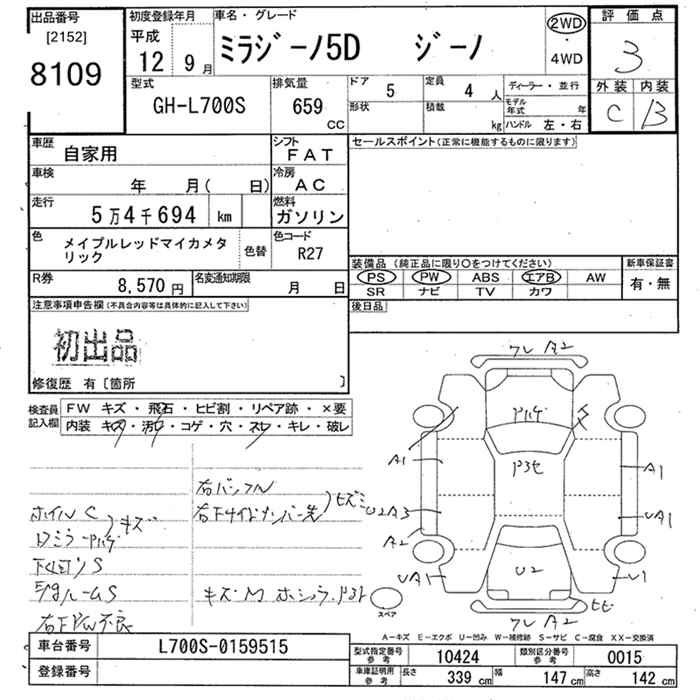 出品番号
[2152]
8109
初度登録年月
平成
12年 9月
車名・グレード
ﾐﾗｼﾞｰﾉ5D ｼﾞｰﾉ
2WD
・
4WD
評価点
3
外装 内装
C B
型式
GH-L700S
排気量
659
CC
ドア 5
定員 4 人
形状
積載 kg
ディーラー・並行
モデル年式 年
ハンドル 左・右
車歴
自家用
シフト
FAT
セールスポイント(正常に機能するものに限ります)
車検
年 月( 日)
冷房
AC
走行
5万4千694 km
燃料
ガソリン
色
メイプルレッドマイカメタリック
色替
色コード
R27
装備品(純正品に限り○をつけてください)
新車保証書
PS PW ABS エアB AW
有・無
SR ナビ TV カワ
R券
8,570円
名変通知期限
月 日
後日品
注意事項申告欄(不具合内容等は具体的に記入して下さい)
初出品
修復歴 有〔箇所 〕
検査員
記入欄
FW キズ・飛石・ヒビ割・リペア跡・×要
内装 キズ・汚れ・コゲ・穴・スレ・キレ・破レ
ホイルC
キズ
右バンパー
A2
A1
A1
U2A3
UA1
A2
UA1
U2
U1
A2
スペア
A-キズ E-エクボ U-凹み W-補修跡 S-サビ C-腐食 XX-交換済
車台番号
L700S-0159515
登録番号
型式指定番号
参考
10424
類別区分番号
参考
0015
車庫証明用
参考
長さ 339 cm
幅 147 cm
高さ 142 cm